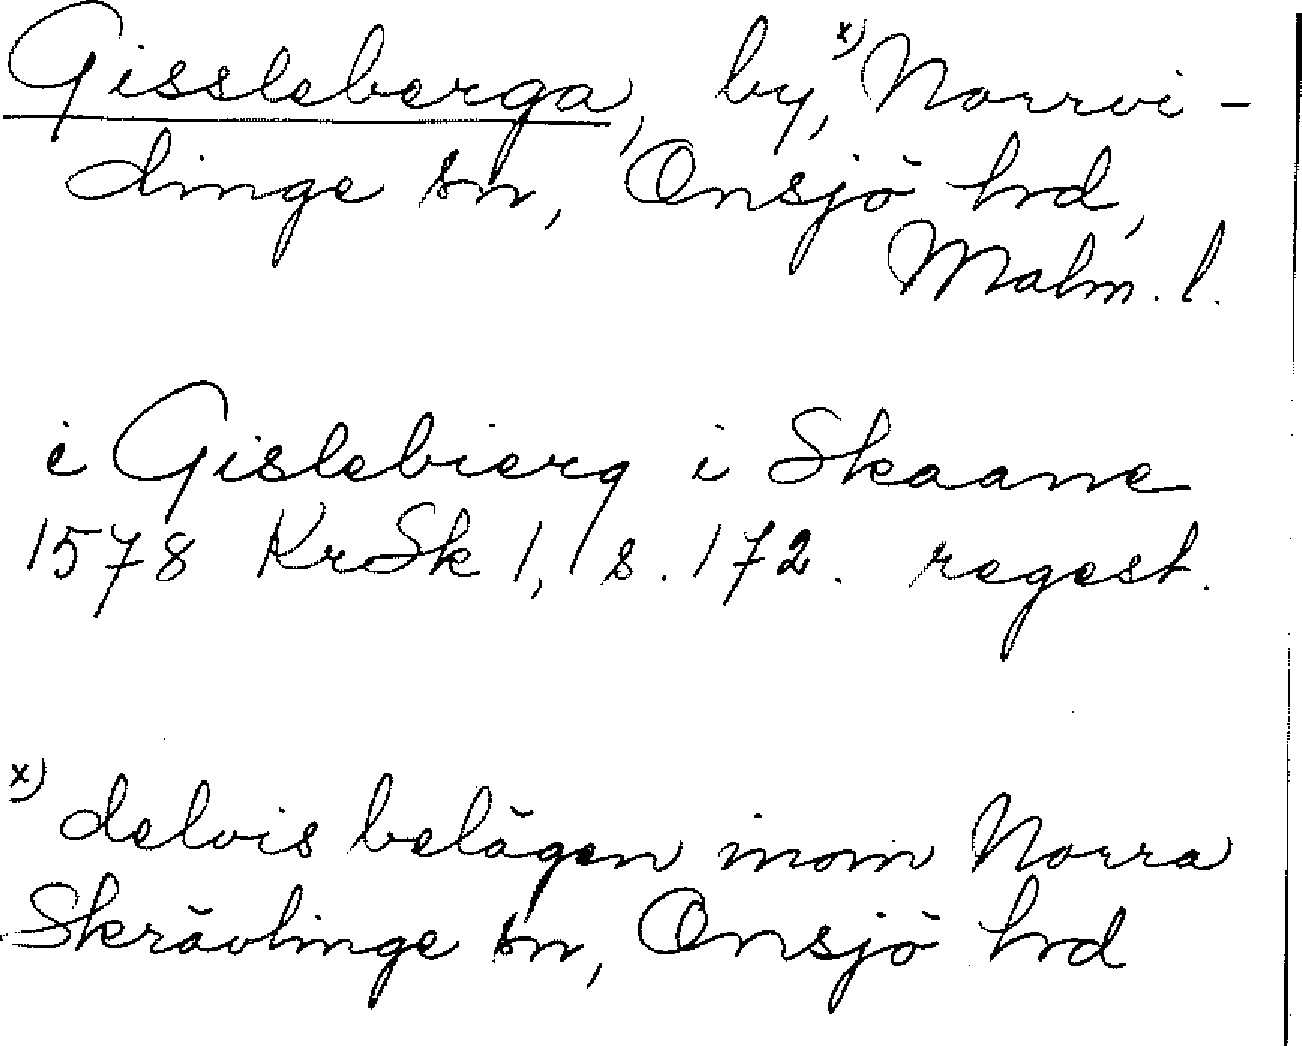 Gissleberga, by,x) Norrvi-
dinge sn, Onsjö hd,
Malm. l.
i Gislebierg i Skaane
1578 KrSk 1, s. 172. regest.
x) delvis belägen inom Norra
Skrävlinge sn, Onsjö hd